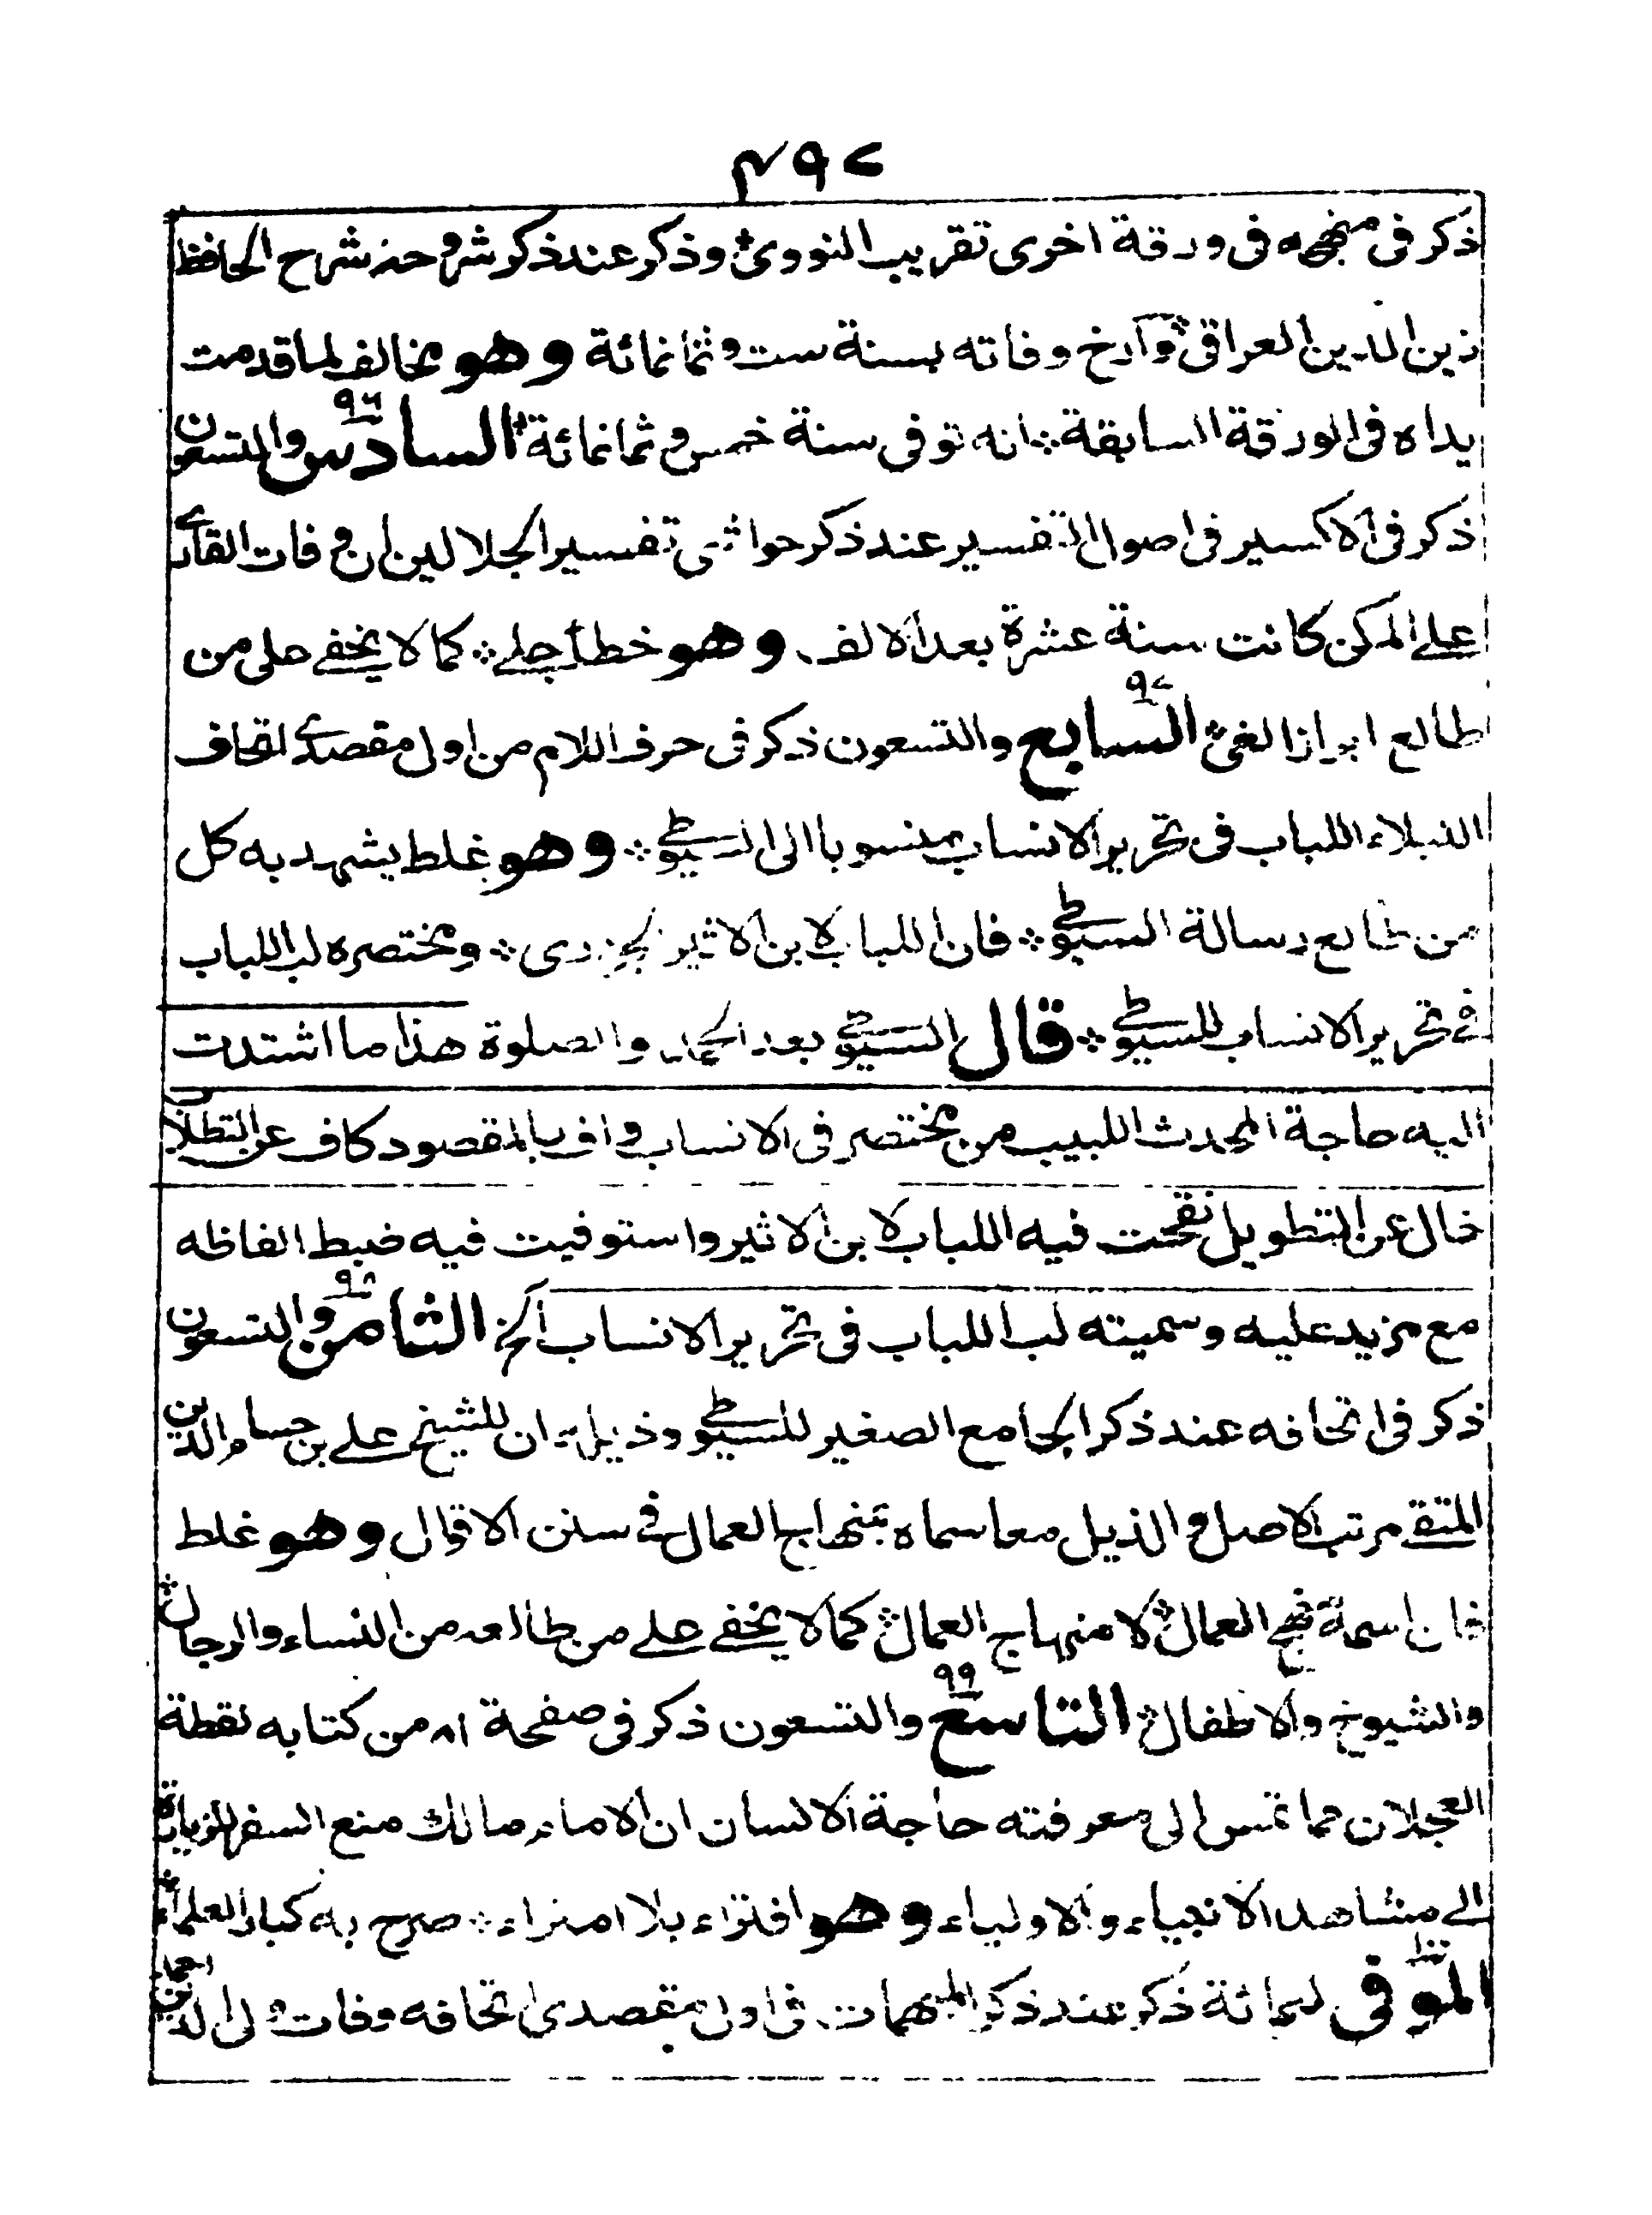 ٣٩٧
ذكر فى منهجه فى ورقة اخرى تقريب النووى وذكر عند ذكر شروحه شرح الحافظ
زين الدين العراقى وأرخ وفاته بسنة ست وثمانمائة وهو مخالف لما قدمت
يداه فى الورقة السابقة انه توفى سنة خمس وثمانمائة السادس والتسعون ٩٦
ذكر فى الاكسير فى اصول التفسير عند ذكر حواشى تفسير الجلالين ان وفات القارى
على المكى كانت سنة عشرة بعد الالف وهو خطأ جلے كما لا يخفے على من
طالع ابراز الغى السابع ٩٧ والتسعون ذكر فى حرف اللام من اول مقصدى اتحاف
النبلاء اللباب فى تحرير الانساب منسوبا الى السيوطے وهو غلط يشهد به كل
من طالع رسالة السيوطے فان اللباب لابن الاثير الجزرى ومختصره لب اللباب
فے تحرير الانساب للسيوطے قال السيوطے بعد الحمد والصلوة هذا ما اشتدت
اليه حاجة المحدث اللبيب من مختصر فى الانساب واف بالمقصود كاف عن التطلاب
خال عن التطويل نقحت فيه اللباب لابن الاثير واستوفيت فيه ضبط الفاظه
مع مزيد عليه وسميته لب اللباب فى تحرير الانساب الخ الثامن والتسعون ٩٨
ذكر فى اتحافه عند ذكر الجامع الصغير للسيوطے وذيله ان للشيخ علے بن حسام الدين
المتقے مرتب الاصل والذيل معا سماه بمنهاج العمال فے سنن الاقوال وهو غلط
فان اسمه نهج العمال لا منهاج العمال كما لا يخفے علے من طالعه من النساء والرجال
والشيوخ والاطفال التاسع ٩٩ والتسعون ذكر فى صفحة ٨١ من كتابه لقطة
العجلان مما تمس الى معرفته حاجة الانسان ان الامام مالك منع السفر للزيارة
الے مشاهد الانبياء والاولياء وهو افتراء بلا امتراء صرح به كبار العلماء
المتوفى للمائة ذكر عند ذكر المبهمات فى اول مقصدى اتحافه وفات ولى الدين احمد